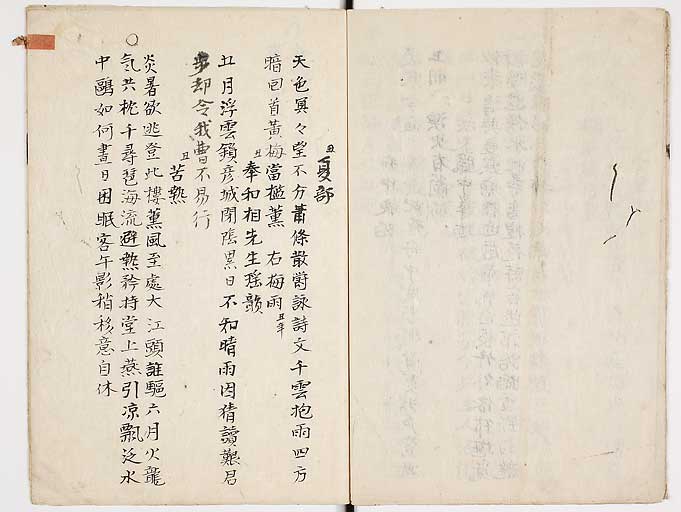 丑 夏部
天色冥々望不分蕭條散欝詠詩文千雲抱雨四方
暗回首黄梅當檻薫 右梅雨 丑年
丑 奉和相先生瑶韻
丑月浮雲鎖彦城閉陰累日不知晴雨因猜讀難君
歩却令我曹不易行
丑 苦熱
炎暑欲逃登此樓薫風至處大江頭誰驅六月火龍
氣共枕千尋琶海流避熱矜持堂上燕引凉飄泛水
中鷗如何晝日困眠客午影稍移意自休